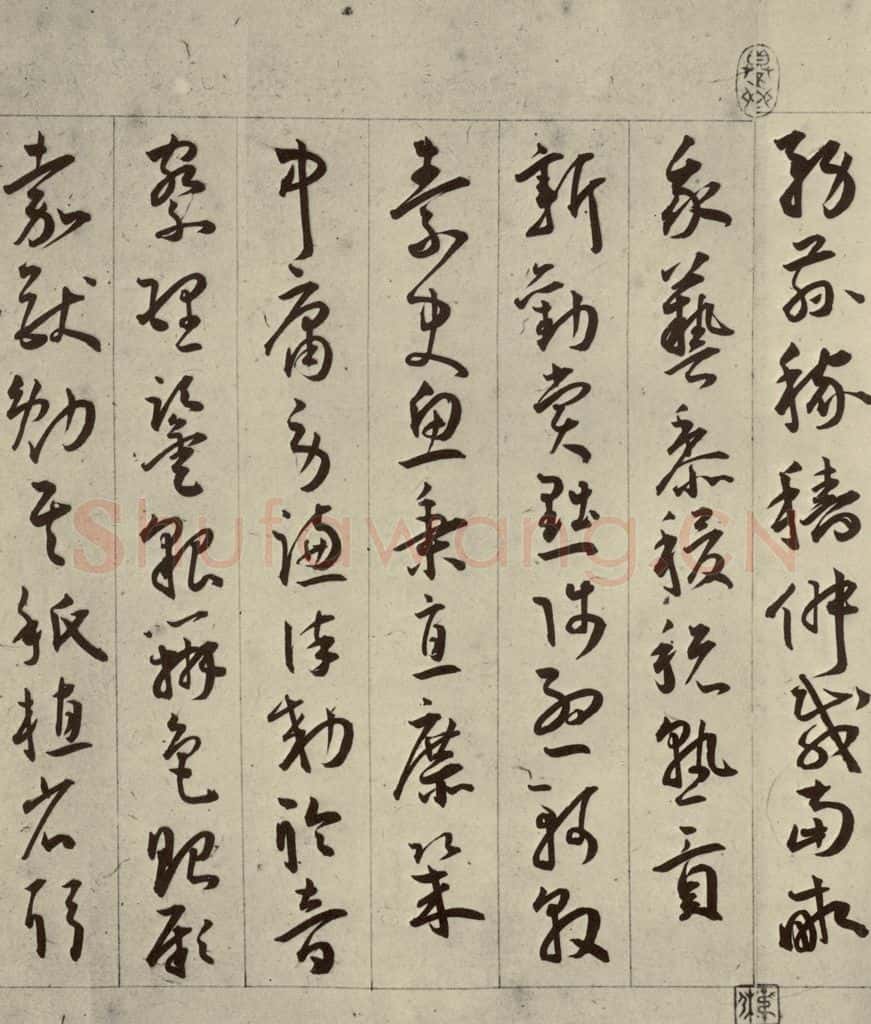 務茲稼穡俶載南畝
我藝黍稷稅熟貢
新勸賞黜陟孟軻敦
素史魚秉直庶幾
中庸勞謙謹敕聆音
察理鑒貌辨色貽厥
嘉猷勉其祗植省躬
Shufawang.CN